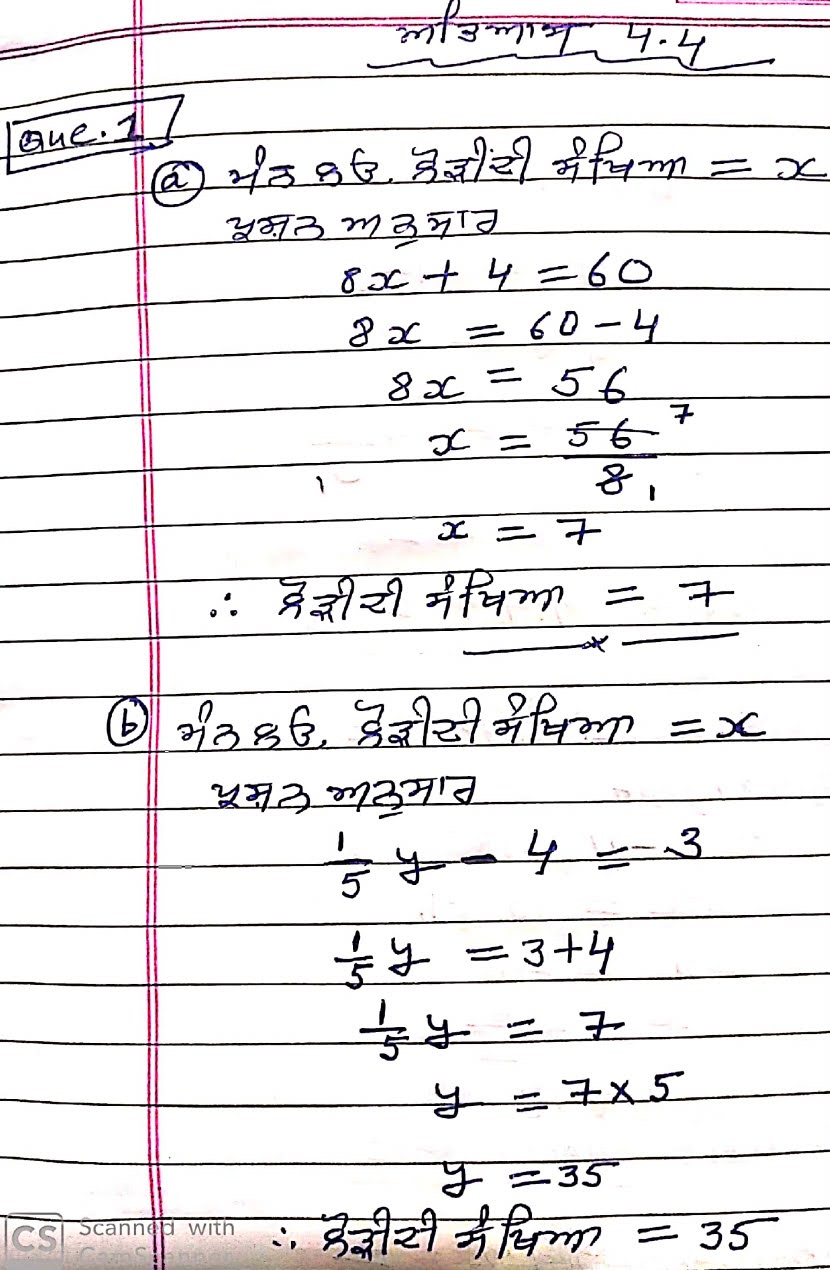 ਅਭਿਆਸ 4.4
Que. 1
(a) ਮੰਨ ਲਓ, ਲੋੜੀਂਦੀ ਸੰਖਿਆ = x
ਪ੍ਰਸ਼ਨ ਅਨੁਸਾਰ
8x + 4 = 60
8x = 60 - 4
8x = 56
x = 56/8 7 1
x = 7
∴ ਲੋੜੀਦੀ ਸੰਖਿਆ = 7
(b) ਮੰਨ ਲਓ, ਲੋੜੀਦੀ ਸੰਖਿਆ = x
ਪ੍ਰਸ਼ਨ ਅਨੁਸਾਰ
1/5 y - 4 = 3
1/5 y = 3+4
1/5 y = 7
y = 7 × 5
y = 35
∴ ਲੋੜੀਦੀ ਸੰਖਿਆ = 35
CS Scanned with
CamScanner